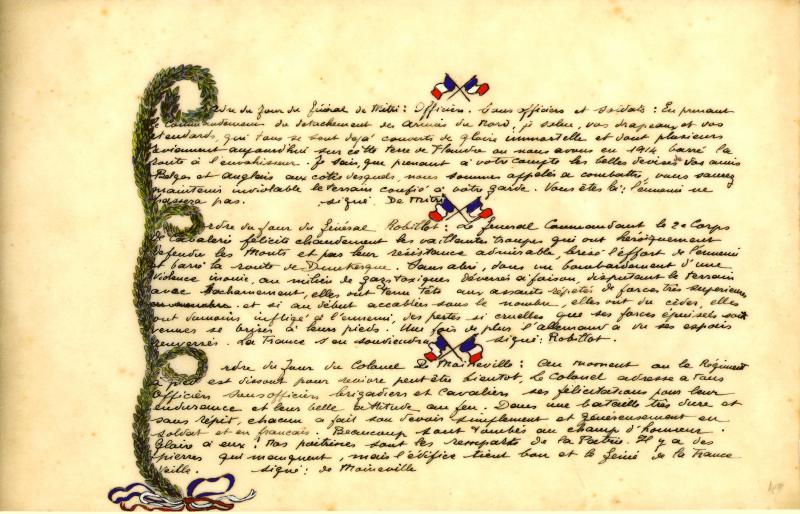 Ordre du Jour du Général de Mitri : Officiers. Sous officiers et soldats : En prenant
le commandement du détachement des armées du Nord, je salue, vos drapeaux et vos
étendards, qui tous se sont déjà couverts de gloire immortelle et dont plusieurs
reviennent aujourd'hui sur cette terre de Flandre où nous avons en 1914 barré la
route à l'envahisseur. Je sais, que prenant à votre compte les belles devises des amis
Belges et Anglais aux côtés desquels, nous sommes appelés a combattre, vous saurez
maintenir inviolable le terrain confié à votre garde. Vous êtes là : l'ennemi ne
passera pas. signé. De Mitri
Ordre du Jour du Général Robillot : Le General Commandant le 2e Corps
de Cavalerie félicite chaudement les vaillantes troupes qui ont héroïquement
défendu les Monts et par leur résistance admirable, brisé l'effort de l'ennemi
et barré la route de Dunkerque. Sans abri, sous un bombardement d'une
violence inouïe, au milieu de gaz toxiques déversés à foison disputant le terrain
avec acharnement, elles ont tenu Tête aux assauts répétés de forces très supérieures
en nombre. et si au début accablées sous le nombre, elles ont du céder, elles
ont du moins infligé à l'ennemi, des pertes si cruelles que ses forces épuisées sont
venues se briser à leurs pieds. Une fois de plus l'allemand a vu ses espoirs
renversés. La France s'en souviendra. signé: Robillot.
Ordre du Jour du Colonel De Maineville : Au moment ou le Régiment
à pied est dissout pour revivre peut être bientot, le Colonel adresse a tous
Officiers sous officiers brigadiers et cavaliers ses félicitations pour leur
endurance et leur belle attitude au feu. Dans une bataille très dure et
sans répit, chacun a fait son devoir simplement et généreusement en
soldat et en français. Beaucoup sont tombés au champ d'honneur.
Gloire à eux! Nos poitrines sont les remparts de la Patrie. Il y a des
pierres qui manquent, mais l'édifice tient bon et le Génie de la France
veille. signé: de Maineville